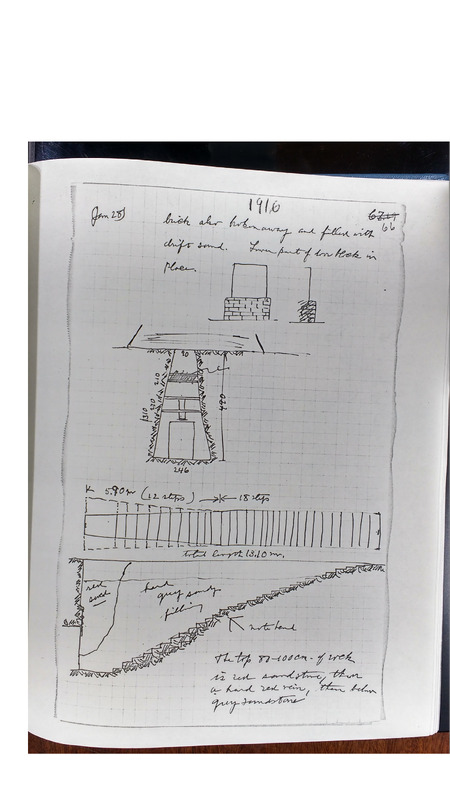 1916
(Jan 28)
66
brick also broken away and filled with
drift sand. Lower part of door block in
place.
90
210
220
1310
480
246
5.90 m (12 steps)
18 steps
total length 13.10 m.
red
sand
hard
grey sandy
filling
not hard
The top 80-100 cm. of rock
is red sandstone, then
a hard red vein, then below
grey sandstone